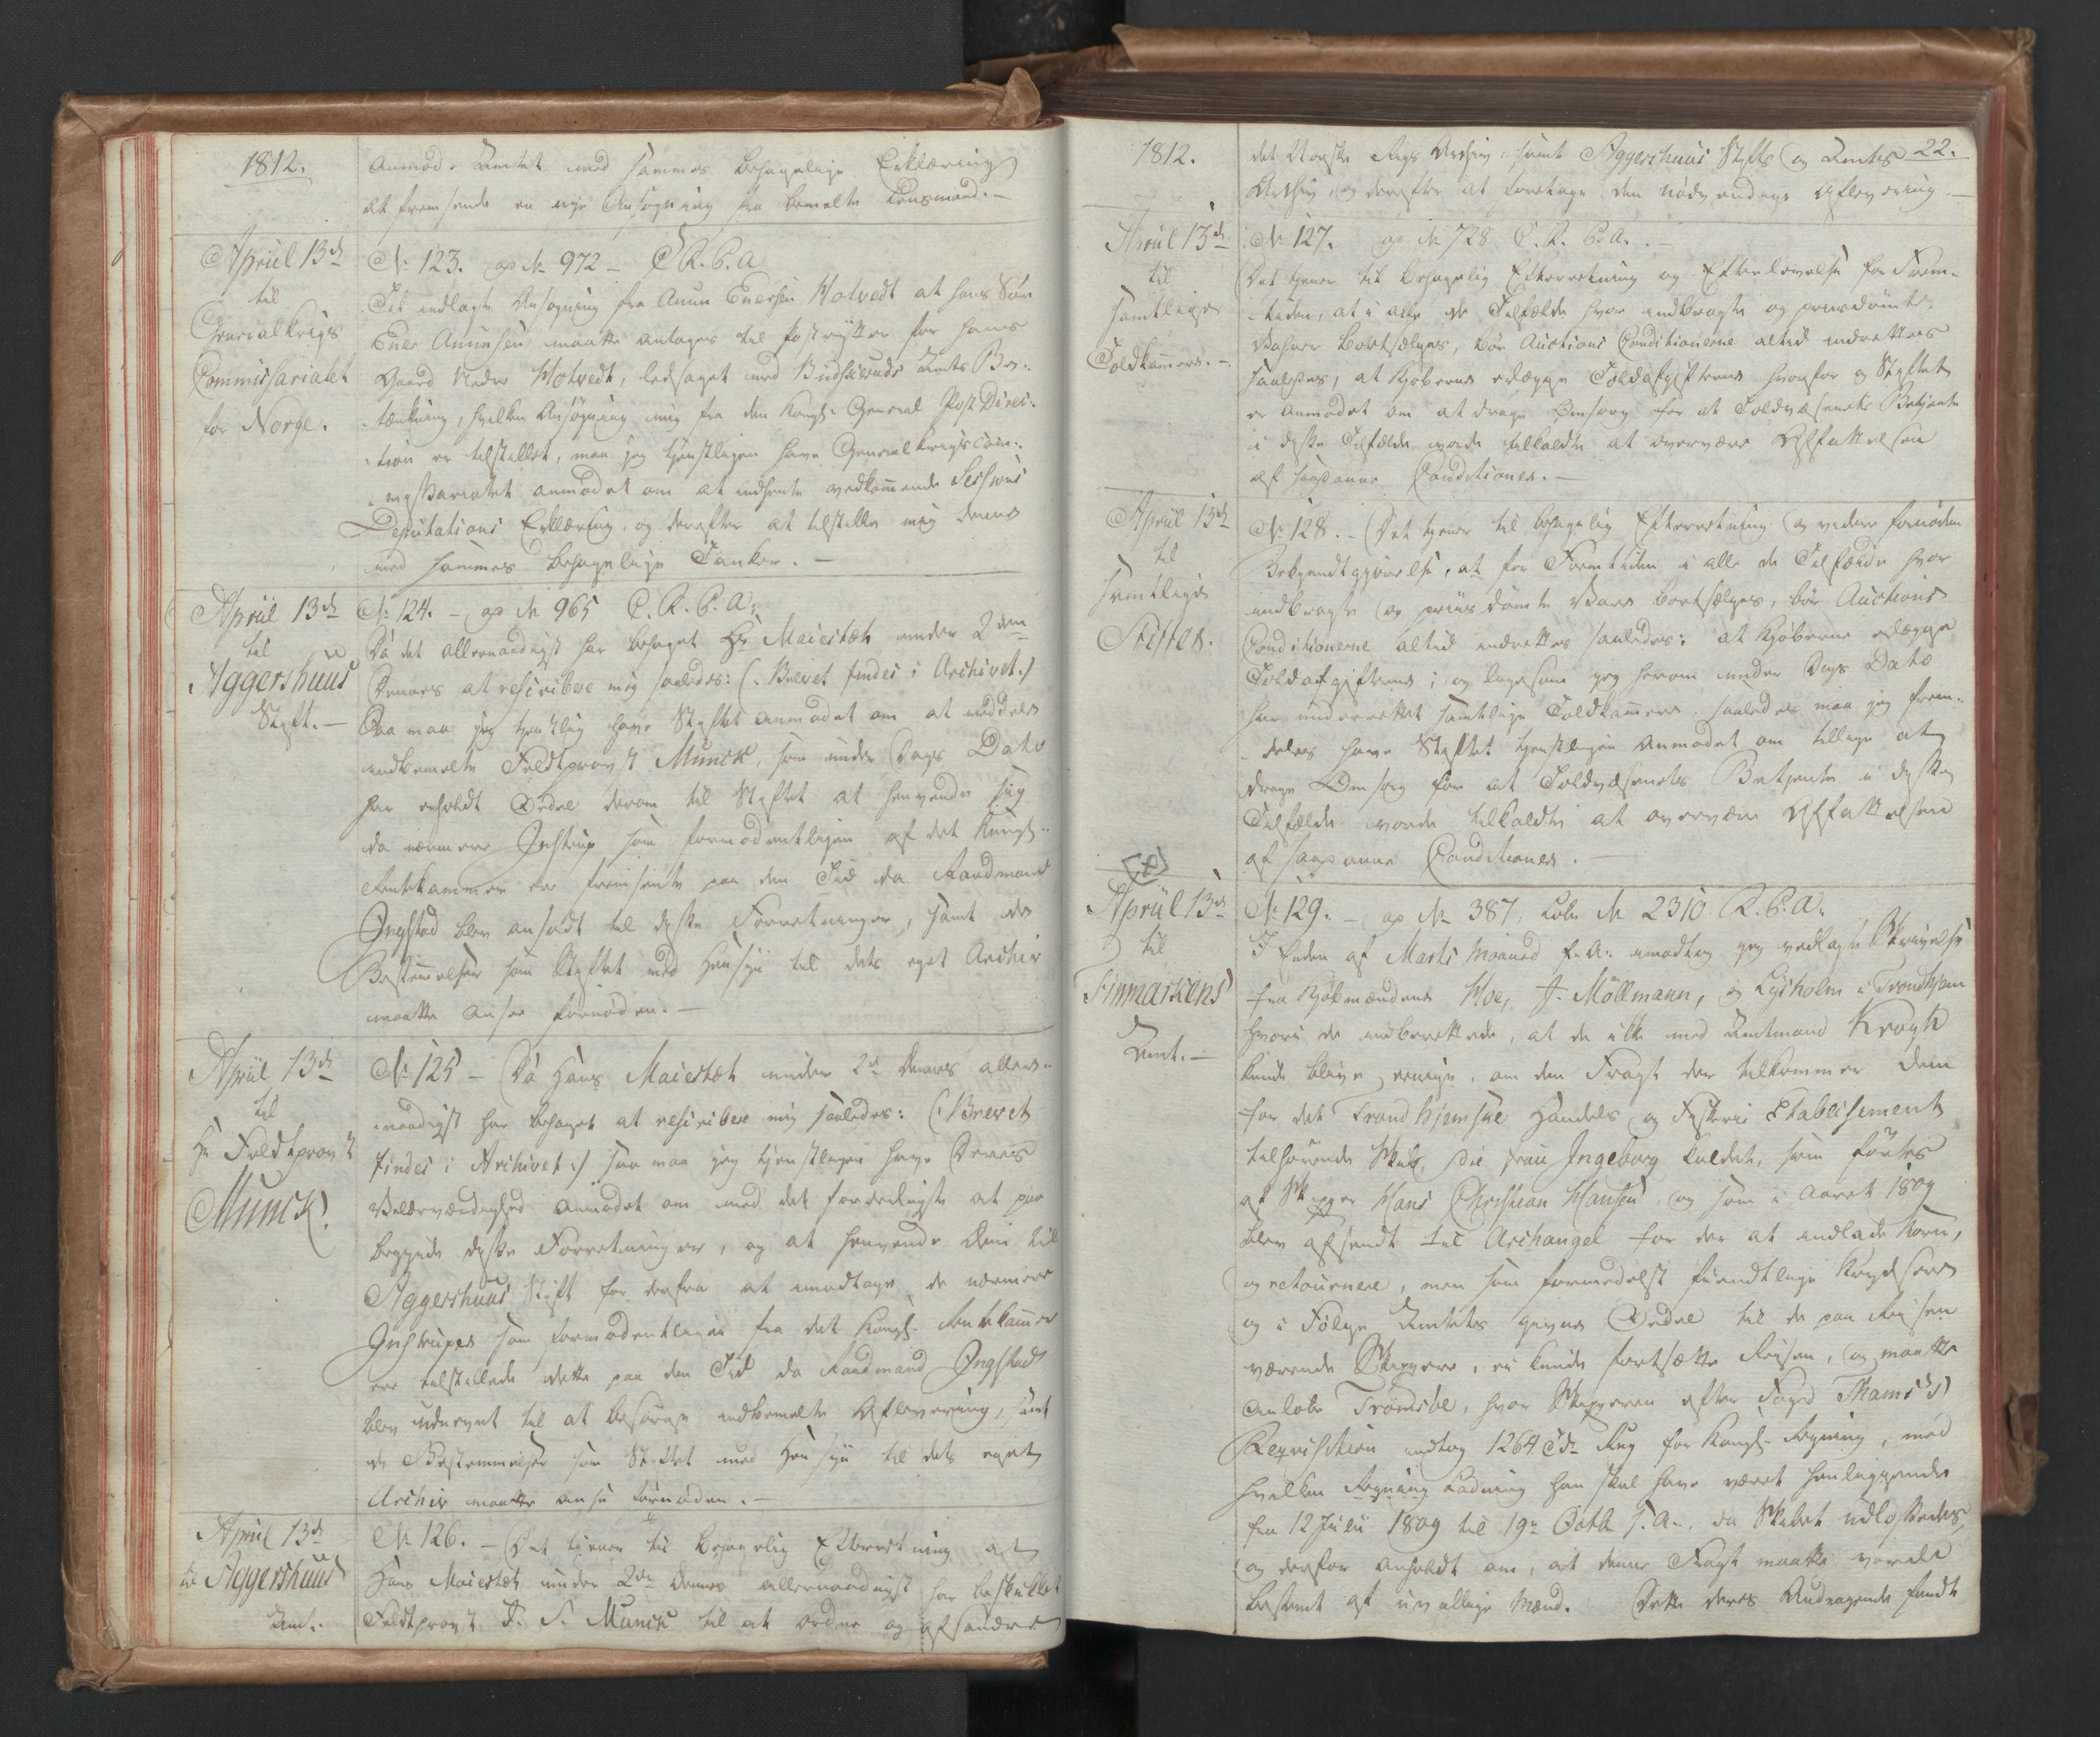 1812.
anmode Amtet med sammes behagelige Erklæring
at fremsende en nye Ansøgning fra bemelte Lensmand.-
Apriil 13de
til
General Krigs
Commissariatet
for Norge.
No 123. ap No 972 - C. R. P. A
Ansøgning fra Amun Enersen Holvedt at hans Søn
Ener Amunsen maatte antages til Postrytter for hans
Gaard Nedre Holvedt, ledsaget med Budscruds Amts Be-
tænkning, hvilken Ansøgning mig fra den Kongl. General Post Direc-
tion er tilstillet, maa jeg tjenstligen have General Krigscom-
missariatet anmodet om at indhente vedkommende Sessions
Deputations Erklæring, og derefter at tilstille mig denne
med sammes behagelige Tanker. -
Apriil 13de
til
Aggershuus
Stift. -
No 124. - ap No 965 C. R. P. A.
Da det allernaadigst har behaget Hs Maiestæt under 2den
Dennes at rescribere mig saaledes: (: Brevet findes i Archivet :)
Saa maa jeg tjenstlig have Stiftet anmodet om at meddele
indbemelte Feldtprovst Munck, som under Dags Dato
har erholdt Ordre derom til Stiftet at henvende sig
de nærmere Instrup som formodentligen af det Kongl.
Rentekammer er fremsendte paa den Tid da Raadmand
Ingstad blev ansadt til disse Forretninger, samt de
Bestemmelser som Stiftet med Hensyn til dets eget Archiv
maatte ansee fornøden. -
Apriil 13de
til
Hr Feldtprovst
Munck.
No 125 - Da Hans Maiestæt under 2de Dennes aller-
naadigst har behaget at rescribere mig saaledes: (: Brevet
findes i Archivet :) saa maa jeg tjenstligen have Deres
Velærværdighed anmodet om med det forderligste at paa
begynde disse Forretninger, og at henvende Dem til
Aggershuus Stift for derfra at imodtage de nærmere
Instruxer som formodentligen fra det Kongl. Rentekammer
ere tilstillede dette paa den Tid da Raadmand Ingstad
blev udnevnt til at besørge indbemelte Aflevering, samt
de Bestemmelser som Stiftet med Hensyn til dets eget
Archiv maatte ansee fornøden. -
April 13de
til Aggershuus
Amt.
No 126. - Det tjener til behagelig Efterretning at
Hans Maiestæt under 2den Dennes allernaadigst har beskikket
Feldtprovst J. S. Munck til at ordne og afsondre
1812.
22.
det Norske Rigs Archiv, samt Aggershuus Stifts og Amts
Archiv, og derefter at foretage den nødvendige Aflevering. -
Apriil 13de
til
samtlige
Toldkamere. -
No 127. ap No 728 C. R. P. A. -
Det tjener til behagelig Efterretning og Efterlevelse for Frem-
tiden, at i alle de Tilfælde hvor indbragte og priisdømte
Vahrer bortsælges, bør Auctions Conditionerne altid indrettes
saaledes, at Kjøberne erlægge Toldafgifterne hvorfor og Stiftet
er anmodet om at drage Omsorg for at Toldvæsenets Betjente
i disse Tilfælde vorde tilkaldte at overvære Affattelsen
af saadanne Conditioner. -
Apriil 13de
til
samtlige
Stifter.
No 128. - Det tjener til behagelig Efterretning og videre fornøden
Bekjendtgjørelse, at for Fremtiden i alle de Tilfælde hvor
indbragte og priisdømte Vare bortsælges, bør Auctions
Conditionerne altid indrettes saaledes: at Kjøberne erlægge
Toldafgifterne; og ligesom jeg herom under Dags Dato
har underrettet samtlige Toldkamere saaledes maa jeg frem-
deles have Stiftet tjenstligen anmodet om tillige at
drage Omsorg for at Toldvæsenets Betjente i disse
Tilfælde vorde tilkaldte at overvære Affattelsen
af saadanne Conditioner. -
Apriil 13de
til
Finmarkens
Amt. -
No 129. - ap No 387, Løbe No 2310 R. P. A.
I Enden af Marti Maaned f. A. imodtog jeg vedlagte Skrivelse
fra Kjøbmændene Hoe, J. Möllmann, og Lysholm i Trondhjem
hvori de indberettede, at de ikke med Amtmand Krogh
kunde blive eenige, om den Fragt der tilkommer dem
for det Trondhjemske Handels og Fiskerie Etablisement
tilhørende Skib, die frau Ingeborg kaldet, som førtes
af Skipper Hans Christian Hansen og som i Aaret 1809
blev afsendt til Archangel for der at indlade Korn,
og retournere, men som formedelst fiendtlige Krydsere
og i Følge Amtets givne Ordre til de paa Reisen
værende Skippere, ei kunde fortsætte Reisen, og maatte
anløbe Tromsøe, hvor Skipperen efter Foged Thams's
Reqvisition indtog 1264 Tdr Rug for Kongl. Regning, med
hvilken Ladning han skal have været henliggende
fra 12 Julii 1809 til 19de Octb. s. A., da Skibet udlossedes,
og derfor anholdt om, at denne Fragt maatte vorde
bestemt af uvillige Mænd. Dette deres Andragende sendte